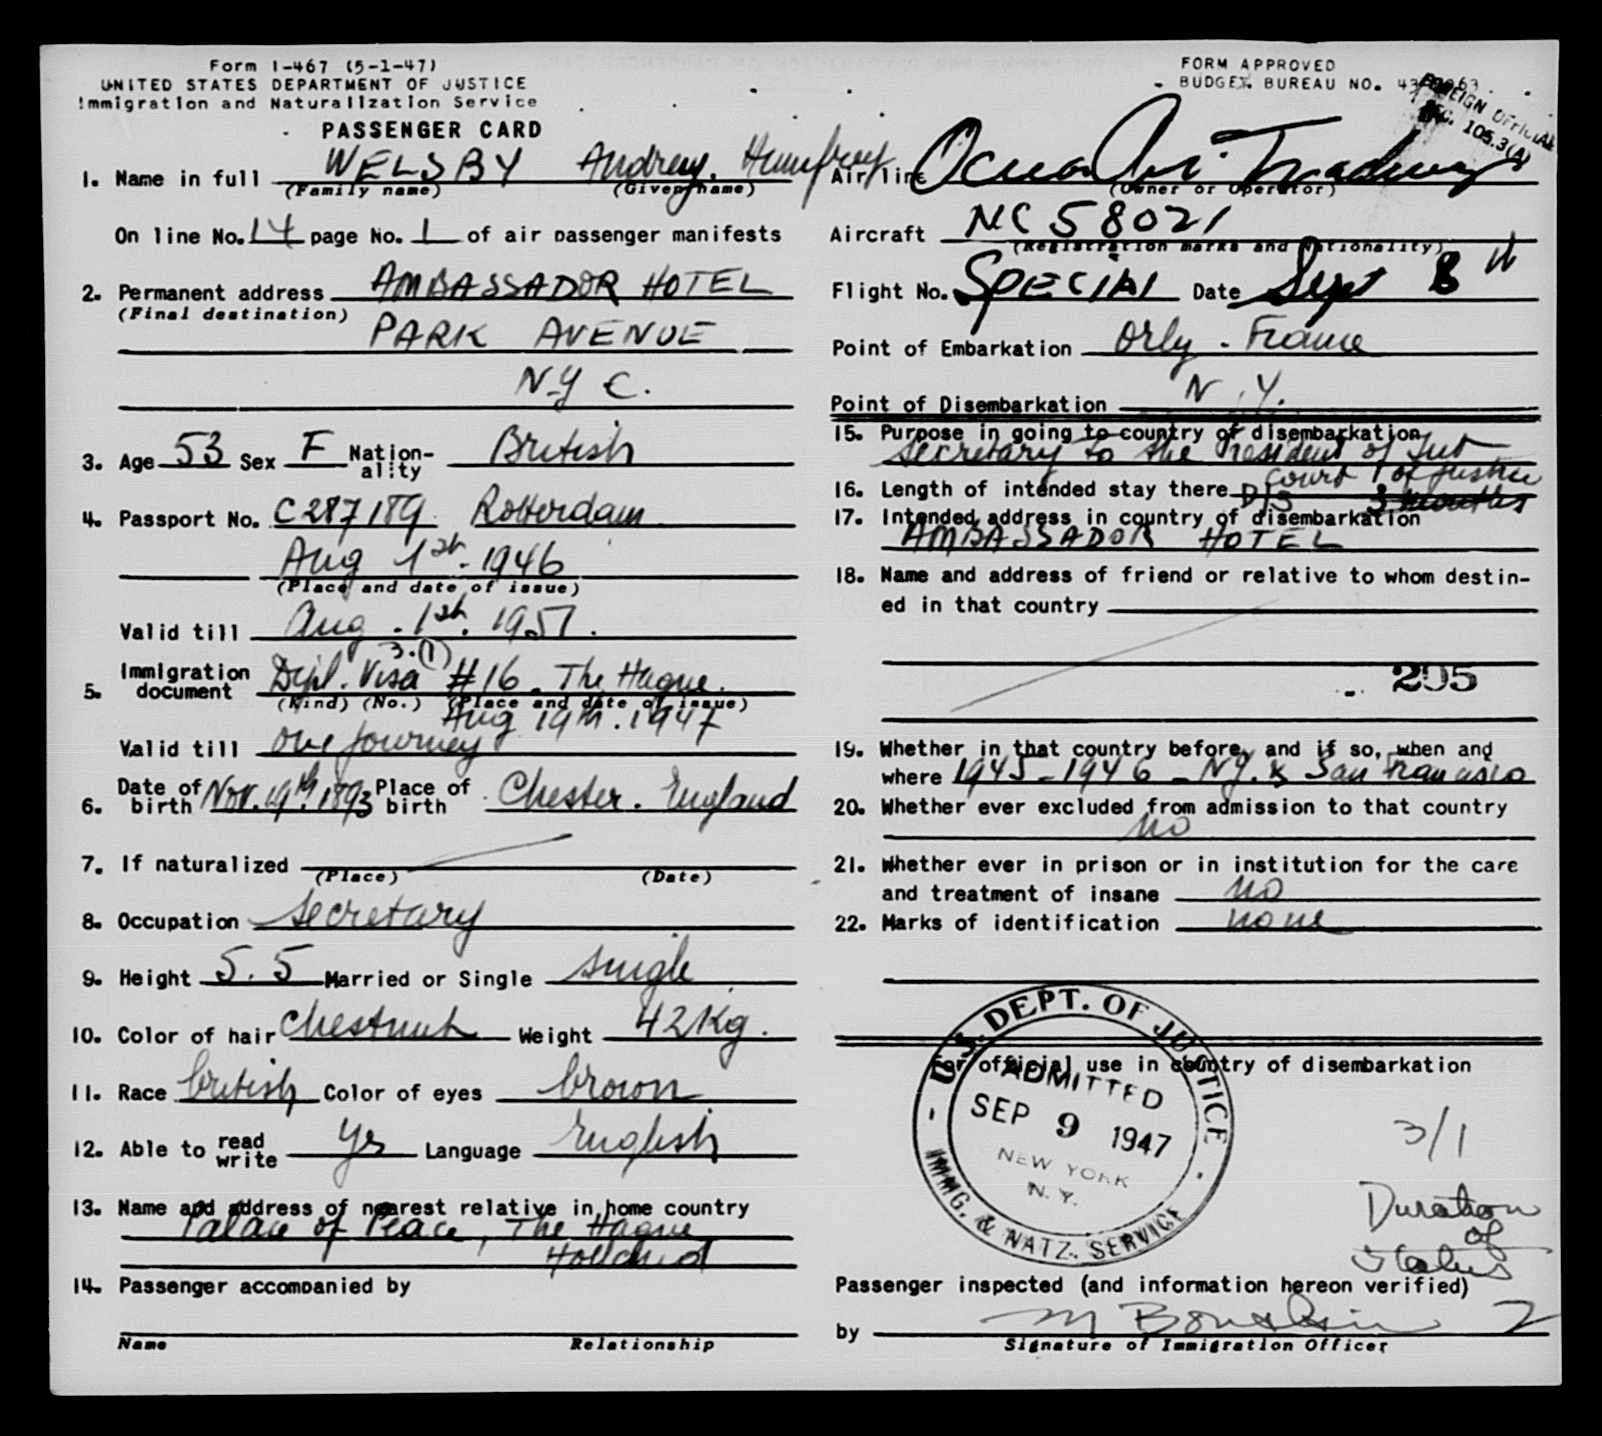 Form I-467 (5-1-47)
UNITED STATES DEPARTMENT OF JUSTICE
Immigration and Naturalization Service
PASSENGER CARD
1. Name in full WELSBY Audrey. Humfrey
(Family name) (Given name)
On line No. 14 page No. 1 of air passenger manifests
2. Permanent address AMBASSADOR HOTEL
(Final destination)
PARK AVENUE
N.Y C.
3. Age 53 Sex F Nation-ality British
4. Passport No. C287189 Rotterdam
Aug 1st. 1946
(Place and date of issue)
Valid till Aug. 1st. 1951.
3.(1)
5. Immigration document Dipl. Visa #16. The Hague.
(Kind) (No.) (Place and date of issue)
Aug 19th. 1947
Valid till one journey
6. Date of birth Nov. 19th. 1893 Place of birth Chester. England
7. If naturalized
(Place) (Date)
8. Occupation Secretary
9. Height 5.5 Married or Single single
10. Color of hair Chestnut Weight 42 Kg.
11. Race british Color of eyes brown
12. Able to read write Yes Language English
13. Name and address of nearest relative in home country
Palace of Peace, The Hague
Holland
14. Passenger accompanied by
Name Relationship
FORM APPROVED
BUDGET BUREAU NO.
FOREIGN OFFICIAL
SEC. 105.3(A)
Air line
(Owner or Operator)
Aircraft NC 58021
(Registration marks and Nationality)
Flight No. SPECIAL Date Sept 8th
Point of Embarkation Orly - France
Point of Disembarkation N.Y.
15. Purpose in going to country of disembarkation
Secretary to the President of Int
Court of Justice
16. Length of intended stay there D/S 3 months
17. Intended address in country of disembarkation
AMBASSADOR HOTEL
18. Name and address of friend or relative to whom destin-
ed in that country
295
19. Whether in that country before, and if so, when and
where 1945-1946 - NY. & San Francisco
20. Whether ever excluded from admission to that country
no
21. Whether ever in prison or in institution for the care
and treatment of insane no
22. Marks of identification none
For official use in country of disembarkation
U.S. DEPT. OF JUSTICE
ADMITTED
SEP 9 1947
NEW YORK
N.Y.
IMMG. & NATZ. SERVICE
3/1
Duration
of
Status
Passenger inspected (and information hereon verified)
by
Signature of Immigration Officer